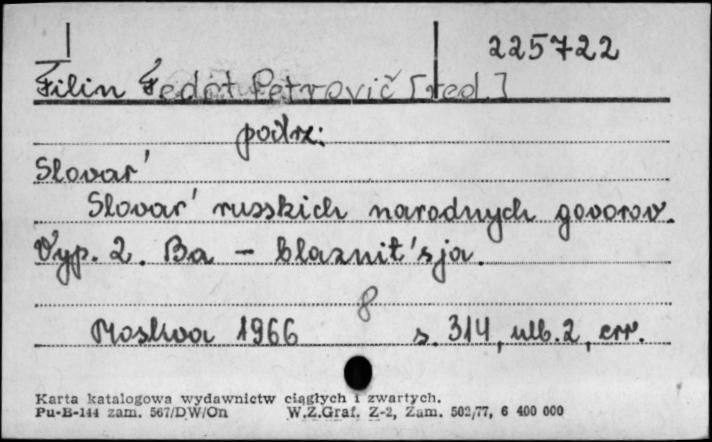 225722
Filin Fedot Petrovič [red.]
podrz:
Slovar'
Slovar' russkich narodnych govorov.
Vyp. 2. Ba - blaznit'sja.
8
Moskva 1966 s. 314, ulb. 2, err.
Karta katalogowa wydawnictw ciągłych i zwartych.
Pu-B-144 zam. 567/DW/On W.Z.Graf. Z-2, Zam. 502/77, 6 400 000